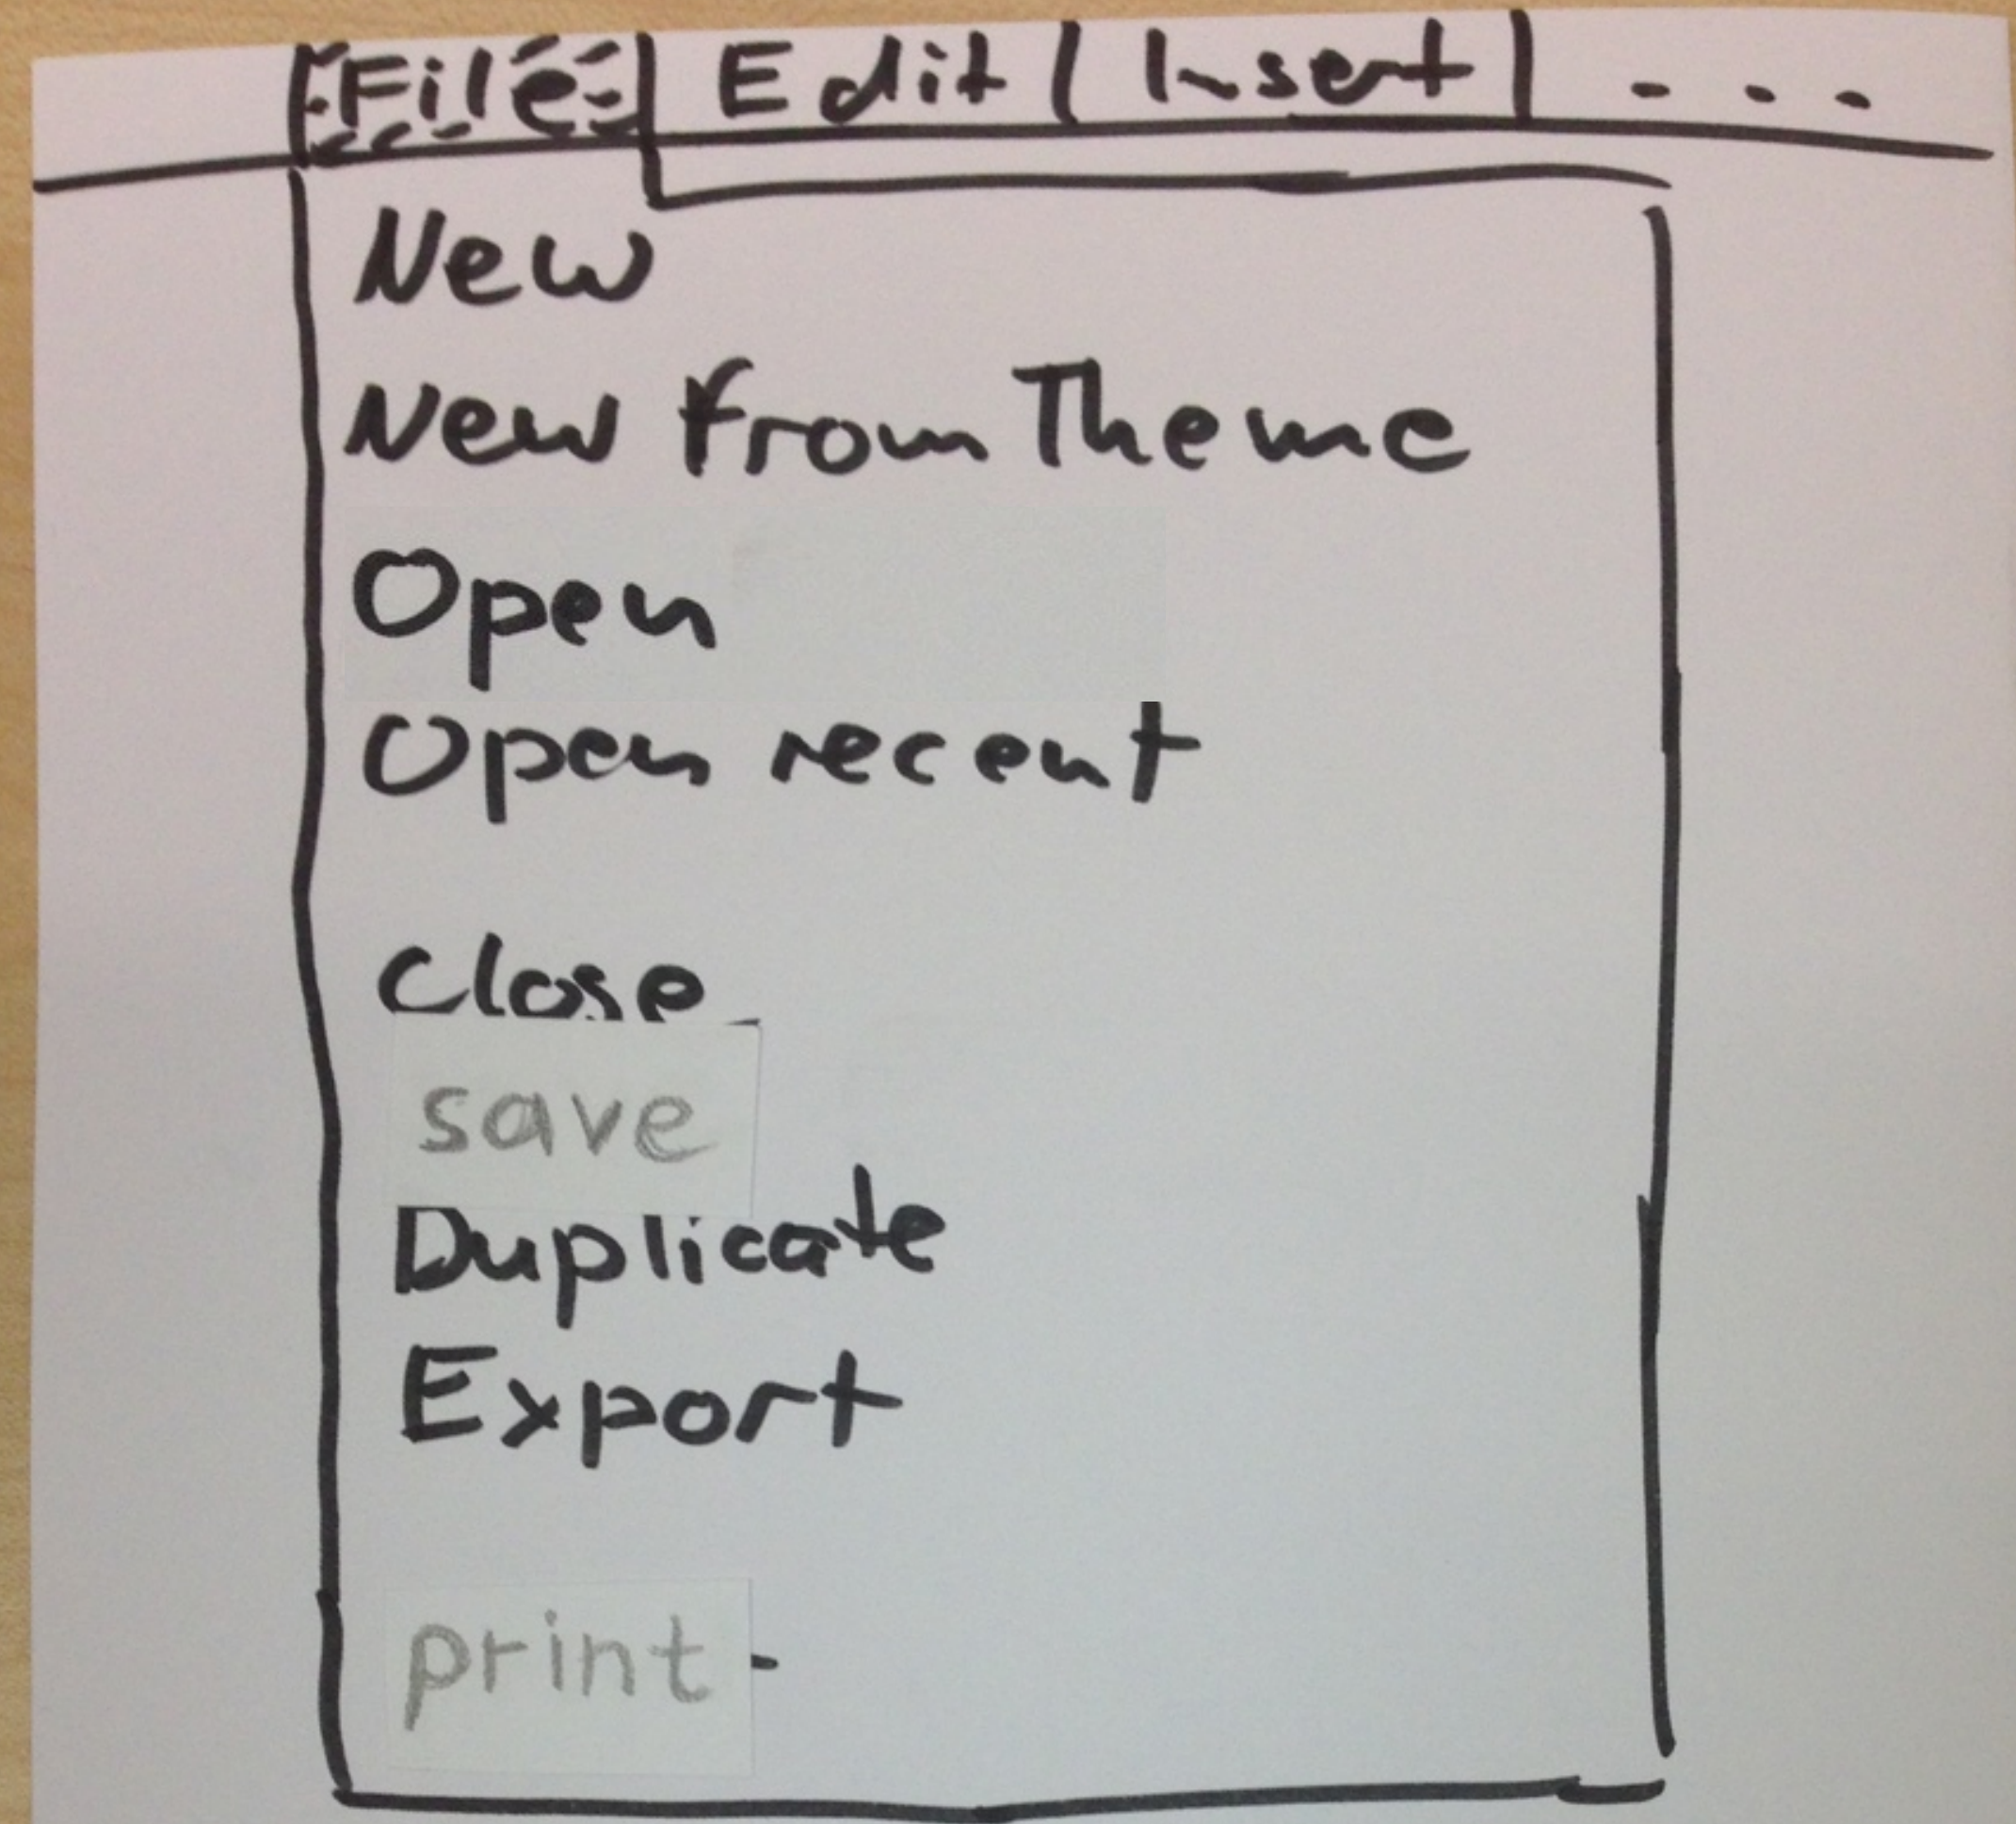 File Edit Insert ...
New
New from Theme
Open
Open recent
Close
save
Duplicate
Export
print